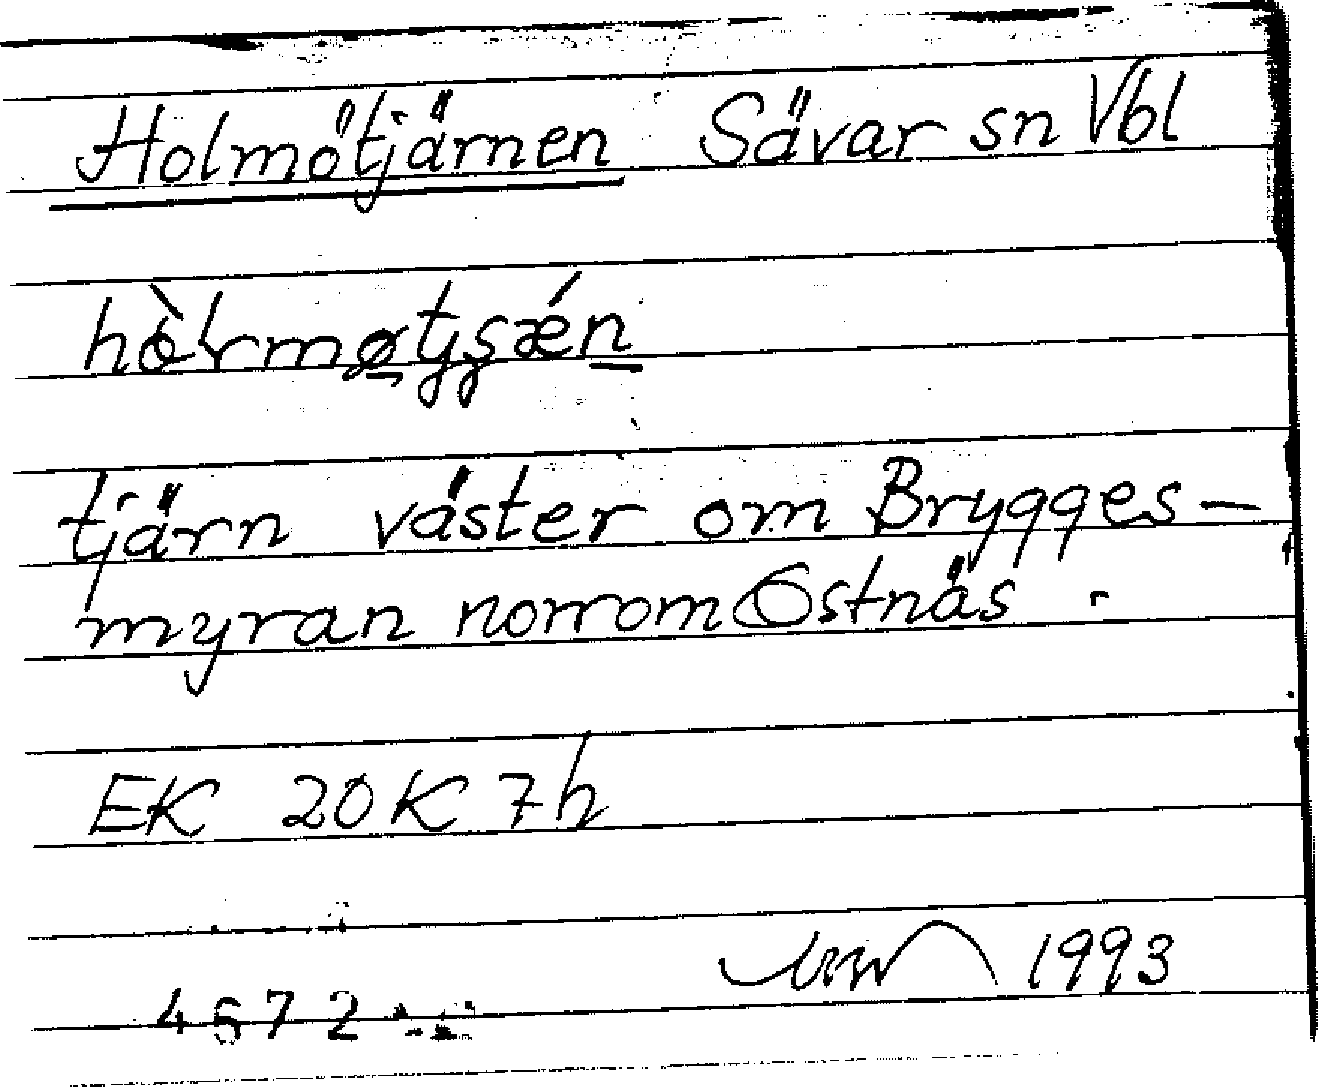 Holmötjärnen Sävar sn Vbl
tjärn väster om Brygges-
myran norrom Östnäs.
EK 20K 7h
1993
4672